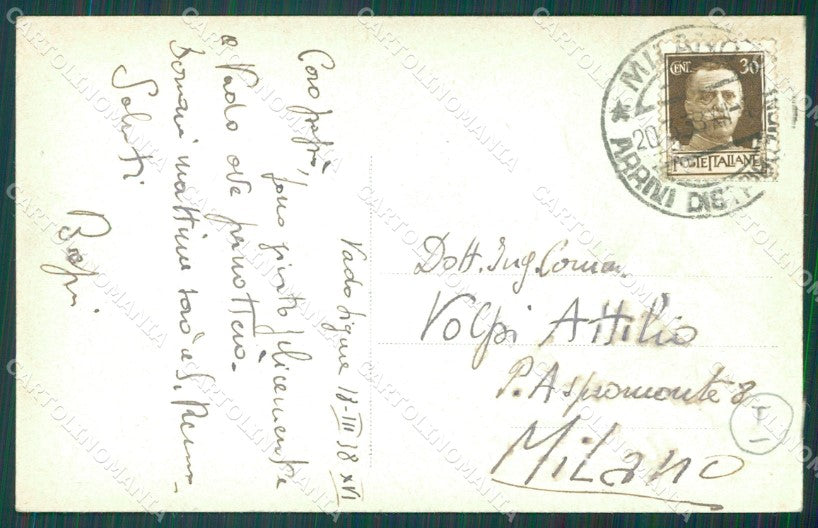 Vado Ligure 18-III 38 XVI
Caro papà,
sono giunto felicemente
a Vado ove pernotterò.
Domani mattina sarò a S. Remo.
Saluti
Beppi
Dott. Ing. Comm.
Volpi Attilio
P. Aspromonte 8
Milano
CENT. 30
POSTE ITALIANE
* MILANO
20
ARRIVI DIST
CARTOLINOMANIA